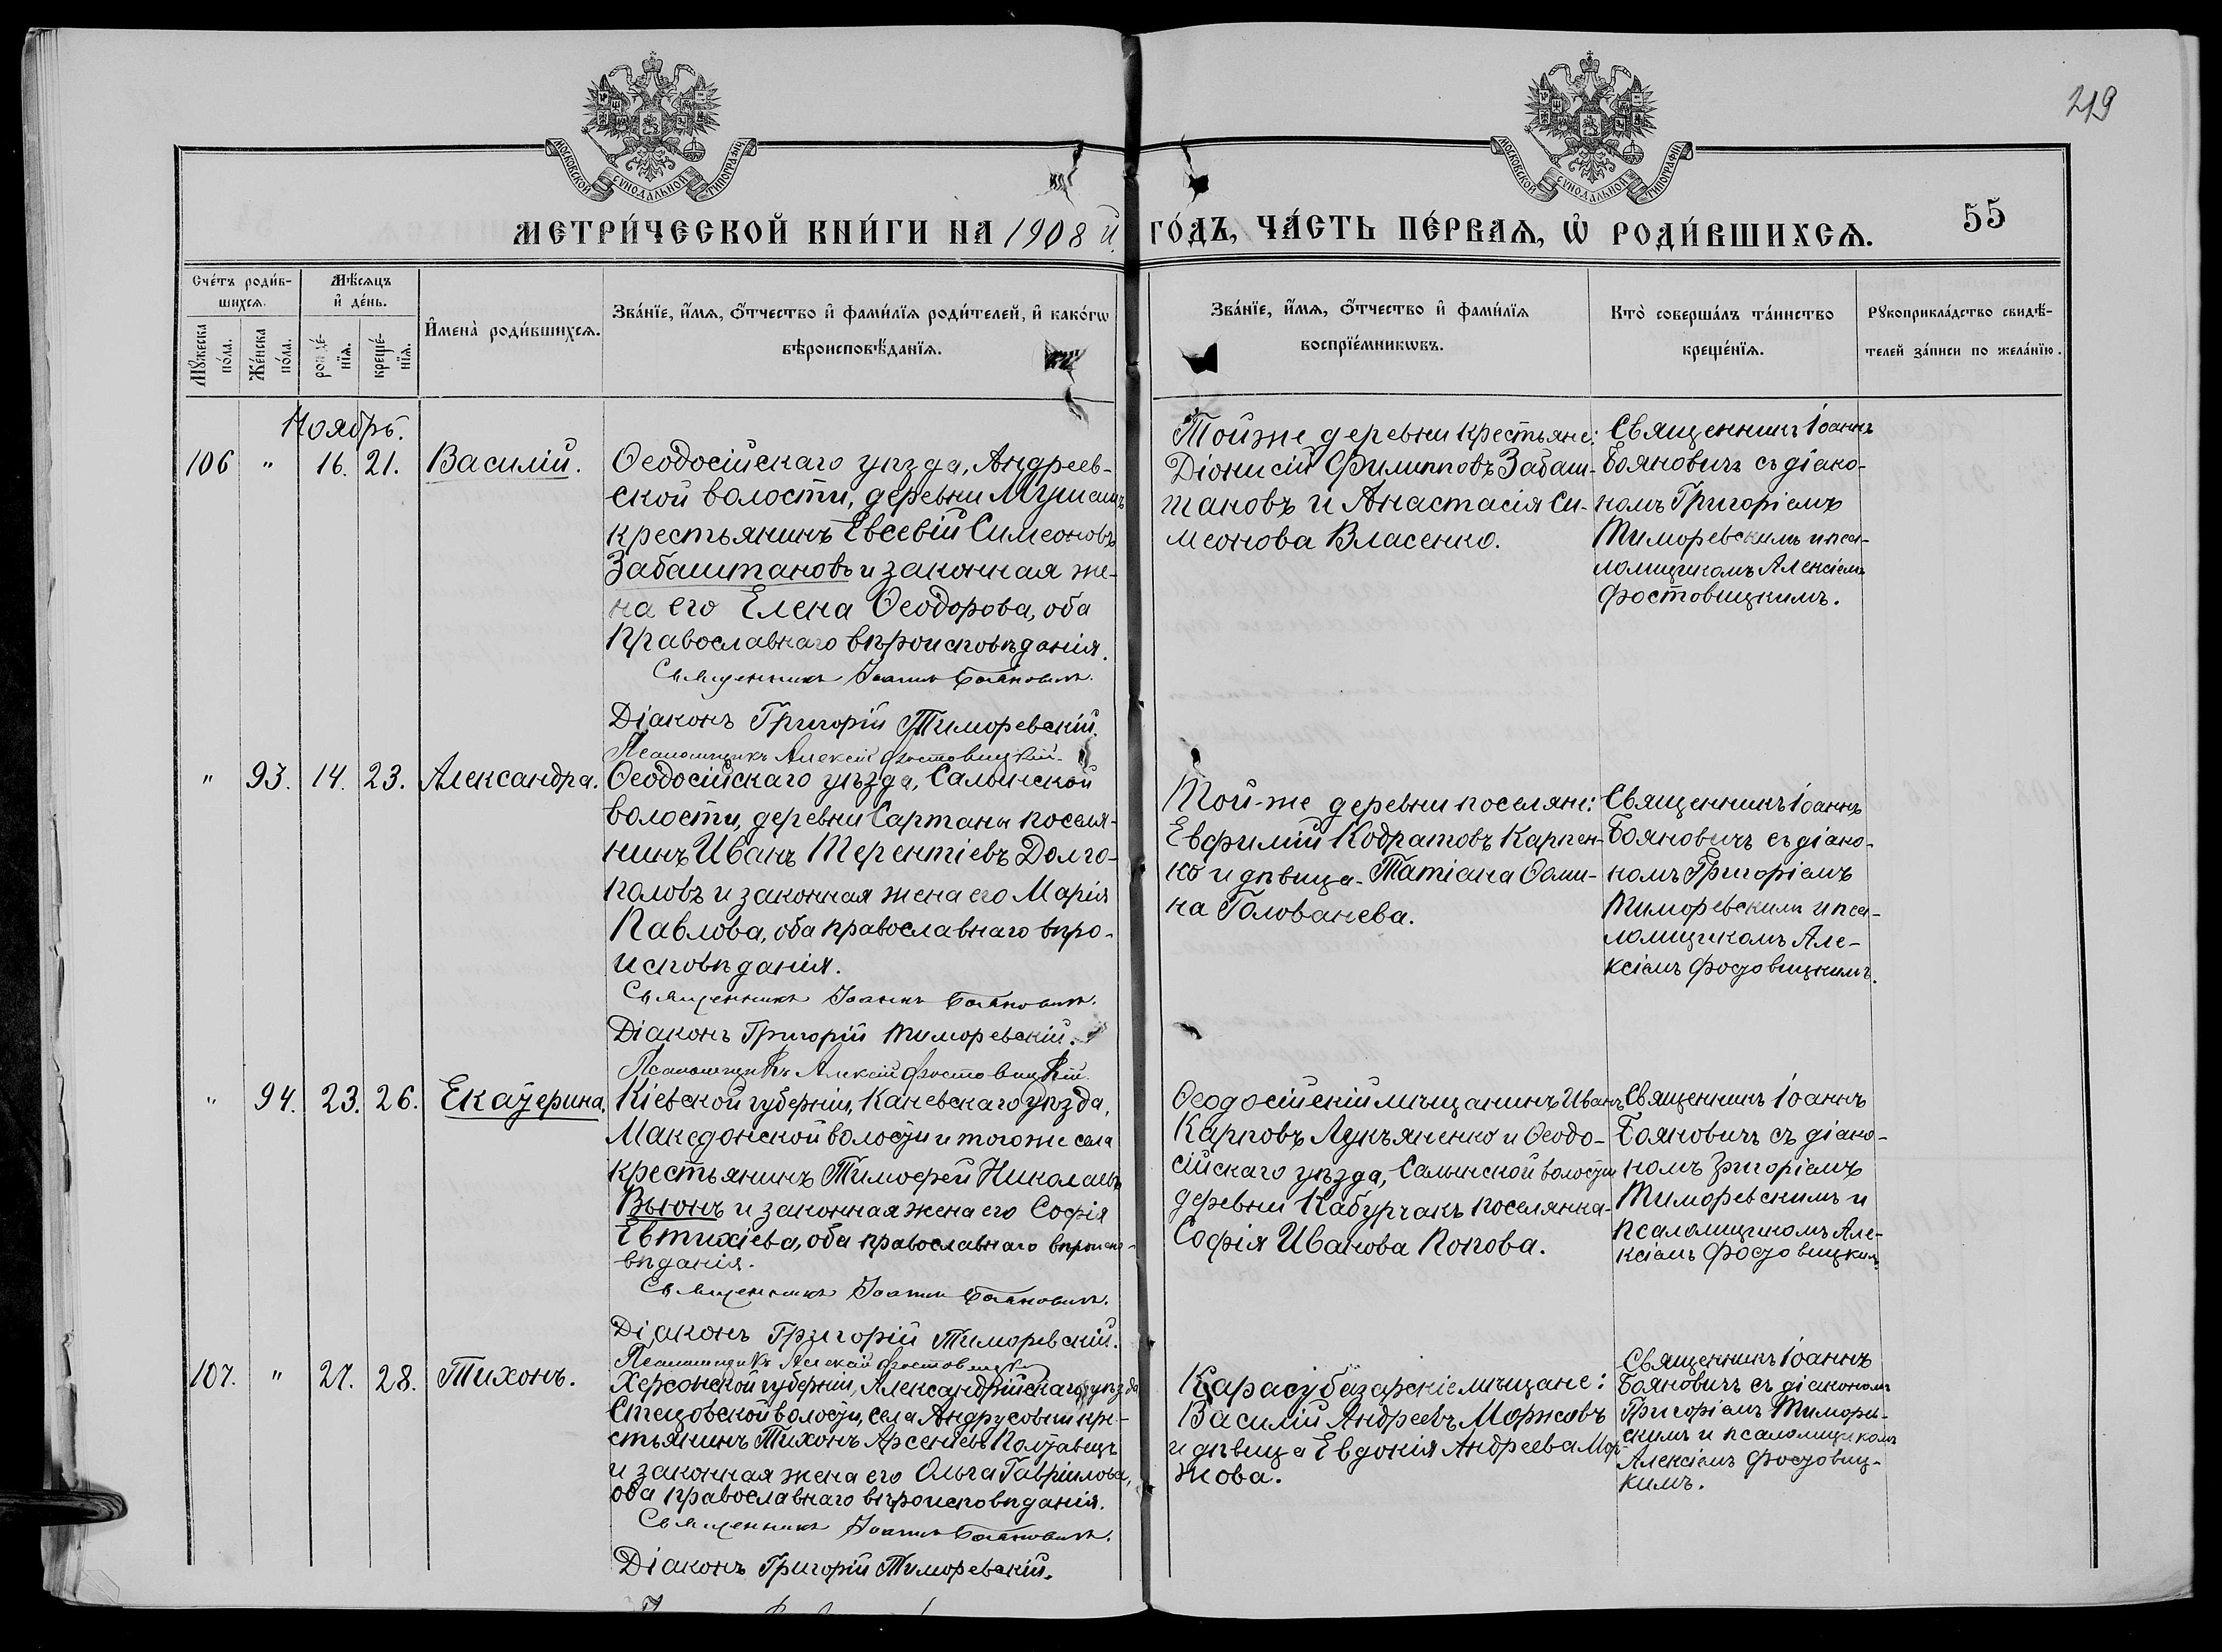 219
МОСКОВСКОЙ СУНОДАЛЬНОЙ ТИПОГРАФІИ
МОСКОВСКОЙ СУНОДАЛЬНОЙ ТИПОГРАФІИ
МЕТРИ́ЧЕСКОЙ КНИ́ГИ НА 1908 й ГО́ДЪ, ЧА́СТЬ ПЕ́РВАѦ, Ѡ РОДИ́ВШИХСѦ. 55
Сче́тъ роди́в-
шихсѧ.
Мꙋ́жеска по́ла.
Же́нска по́ла.
Мѣ́сѧцъ
и де́нь.
рожде́-
нїѧ.
креще́-
нїѧ.
Имена̀ роди́вшихсѧ.
Зва́нїе, и́мѧ, ѻ́тчество и фами́лїѧ роди́телей, и како́гѡ
вѣроисповѣ́данїѧ.
Зва́нїе, и́мѧ, ѻ́тчество и фами́лїѧ
воспрїе́мникѡвъ.
Кто̀ соверша́лъ та́инство
креще́нїѧ.
Рꙋкоприкла́дство свидѣ́-
телей за́писи по жела́нїю.
Ноябрь.
106 " 16. 21. Василій.
Ѳеодосійскаго уѣзда, Андреев-
ской волости, деревни
крестьянинъ Евсевій Симеоновъ
Забаштановъ и законная же-
на его Елена Ѳеодорова, оба
православнаго вѣроисповѣданія.
Священникъ Іоаннъ Бояновичъ.
Діаконъ Григорій Тиморевскій.
Псаломщикъ Алексій Фостовицкій.
Той же деревни крестьяне:
Діонисій Филипповъ Забаш-
тановъ и Анастасія Си-
меонова Власенко.
Священникъ Іоаннъ
Бояновичъ съ діако-
номъ Григоріемъ
Тиморевскимъ и пса-
ломщикомъ Алексіемъ
Фостовицкимъ.
" 93. 14. 23. Александра.
Ѳеодосійскаго уѣзда, Салынской
волости, деревни Сартаны поселя-
нинъ Иванъ Терентіевъ Долго-
половъ и законная жена его Марія
Павлова, оба православнаго вѣро-
исповѣданія.
Священникъ Іоаннъ Бояновичъ.
Діаконъ Григорій Тиморевскій.
Псаломщикъ Алексій Фостовицкій.
Той-же деревни поселяне:
Евфимій Кодратовъ Карпен-
ко и дѣвица Татіана Ѳоми-
на Голованева.
Священникъ Іоаннъ
Бояновичъ съ діако-
номъ Григоріемъ
Тиморевскимъ и пса-
ломщикомъ Але-
ксіемъ Фостовицкимъ.
" 94. 23. 26. Екатерина.
Кіевской губерніи, Каневскаго уѣзда,
Македонской волости и того же села
крестьянинъ Тимоѳей Николаевъ
Вьюнъ и законная жена его Софія
Евтихіева, оба православнаго вѣроиспо-
вѣданія.
Священникъ Іоаннъ Бояновичъ.
Діаконъ Григорій Тиморевскій.
Псаломщикъ Алексій Фостовицкій
Ѳеодосійскій мѣщанинъ Иванъ
Карповъ Лукъяненко и Ѳеодо-
сійскаго уѣзда, Салынской волости
деревни Кабурчакъ поселянка
Софія Иванова Попова.
Священникъ Іоаннъ
Бояновичъ съ діако-
номъ Григоріемъ
Тиморевскимъ и
псаломщикомъ Але-
ксіемъ Фостовицкимъ
107. " 27. 28. Тихонъ.
Херсонской губерніи, Александрійскаго уѣзда
Стецовской волости, села Андрусовки кре-
стьянинъ Тихонъ Арсеніевъ Полтавецъ
и законная жена его Ольга Гавріилова,
оба православнаго вѣроисповѣданія.
Священникъ Іоаннъ Бояновичъ.
Діаконъ Григорій Тиморевскій.
Карасубазарскіе мѣщане:
Василій Андреевъ Моржовъ
и дѣвица Евдокія Андреева Мор-
жова.
Священникъ Іоаннъ
Бояновичъ съ діакономъ
Григоріемъ Тиморев-
скимъ и псаломщикомъ
Алексіемъ Фостовиц-
кимъ.